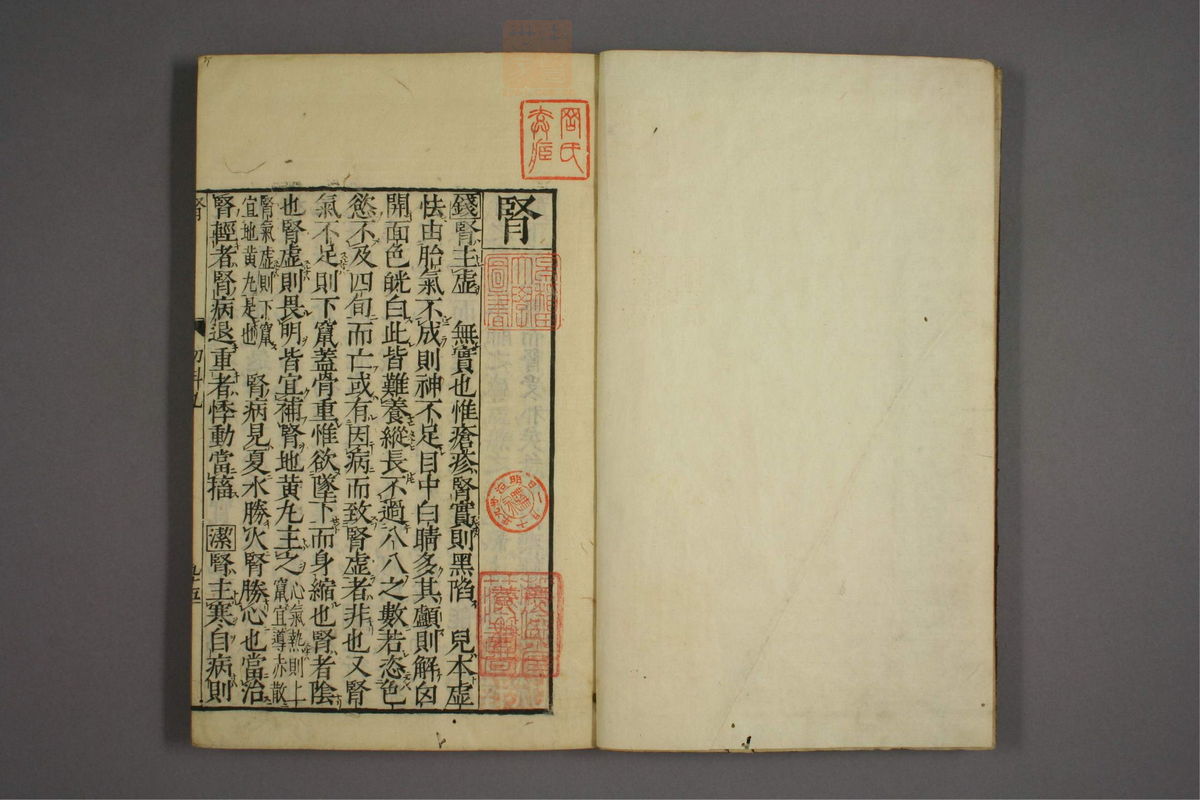 腎
錢腎主虛　無實也惟瘡疹腎實則黑陷　兒本虛
怯由胎氣不成則神不足目中白睛多其顱則解囟
開面色㿠白此皆難養縱長不過八八之數若恣色
慾不及四旬而亡或有因病而致腎虛者非也又腎
氣不足則下竄蓋骨重惟欲墜下而身縮也腎者陰
也腎虛則畏明皆宜補腎地黃丸主之心氣熱則上竄宜導赤散
腎氣虛則下竄宜地黃丸是也　腎病見夏水勝火腎勝心也當治
腎輕者腎病退重者悸動當搐　潔腎主寒自病則
幼科九